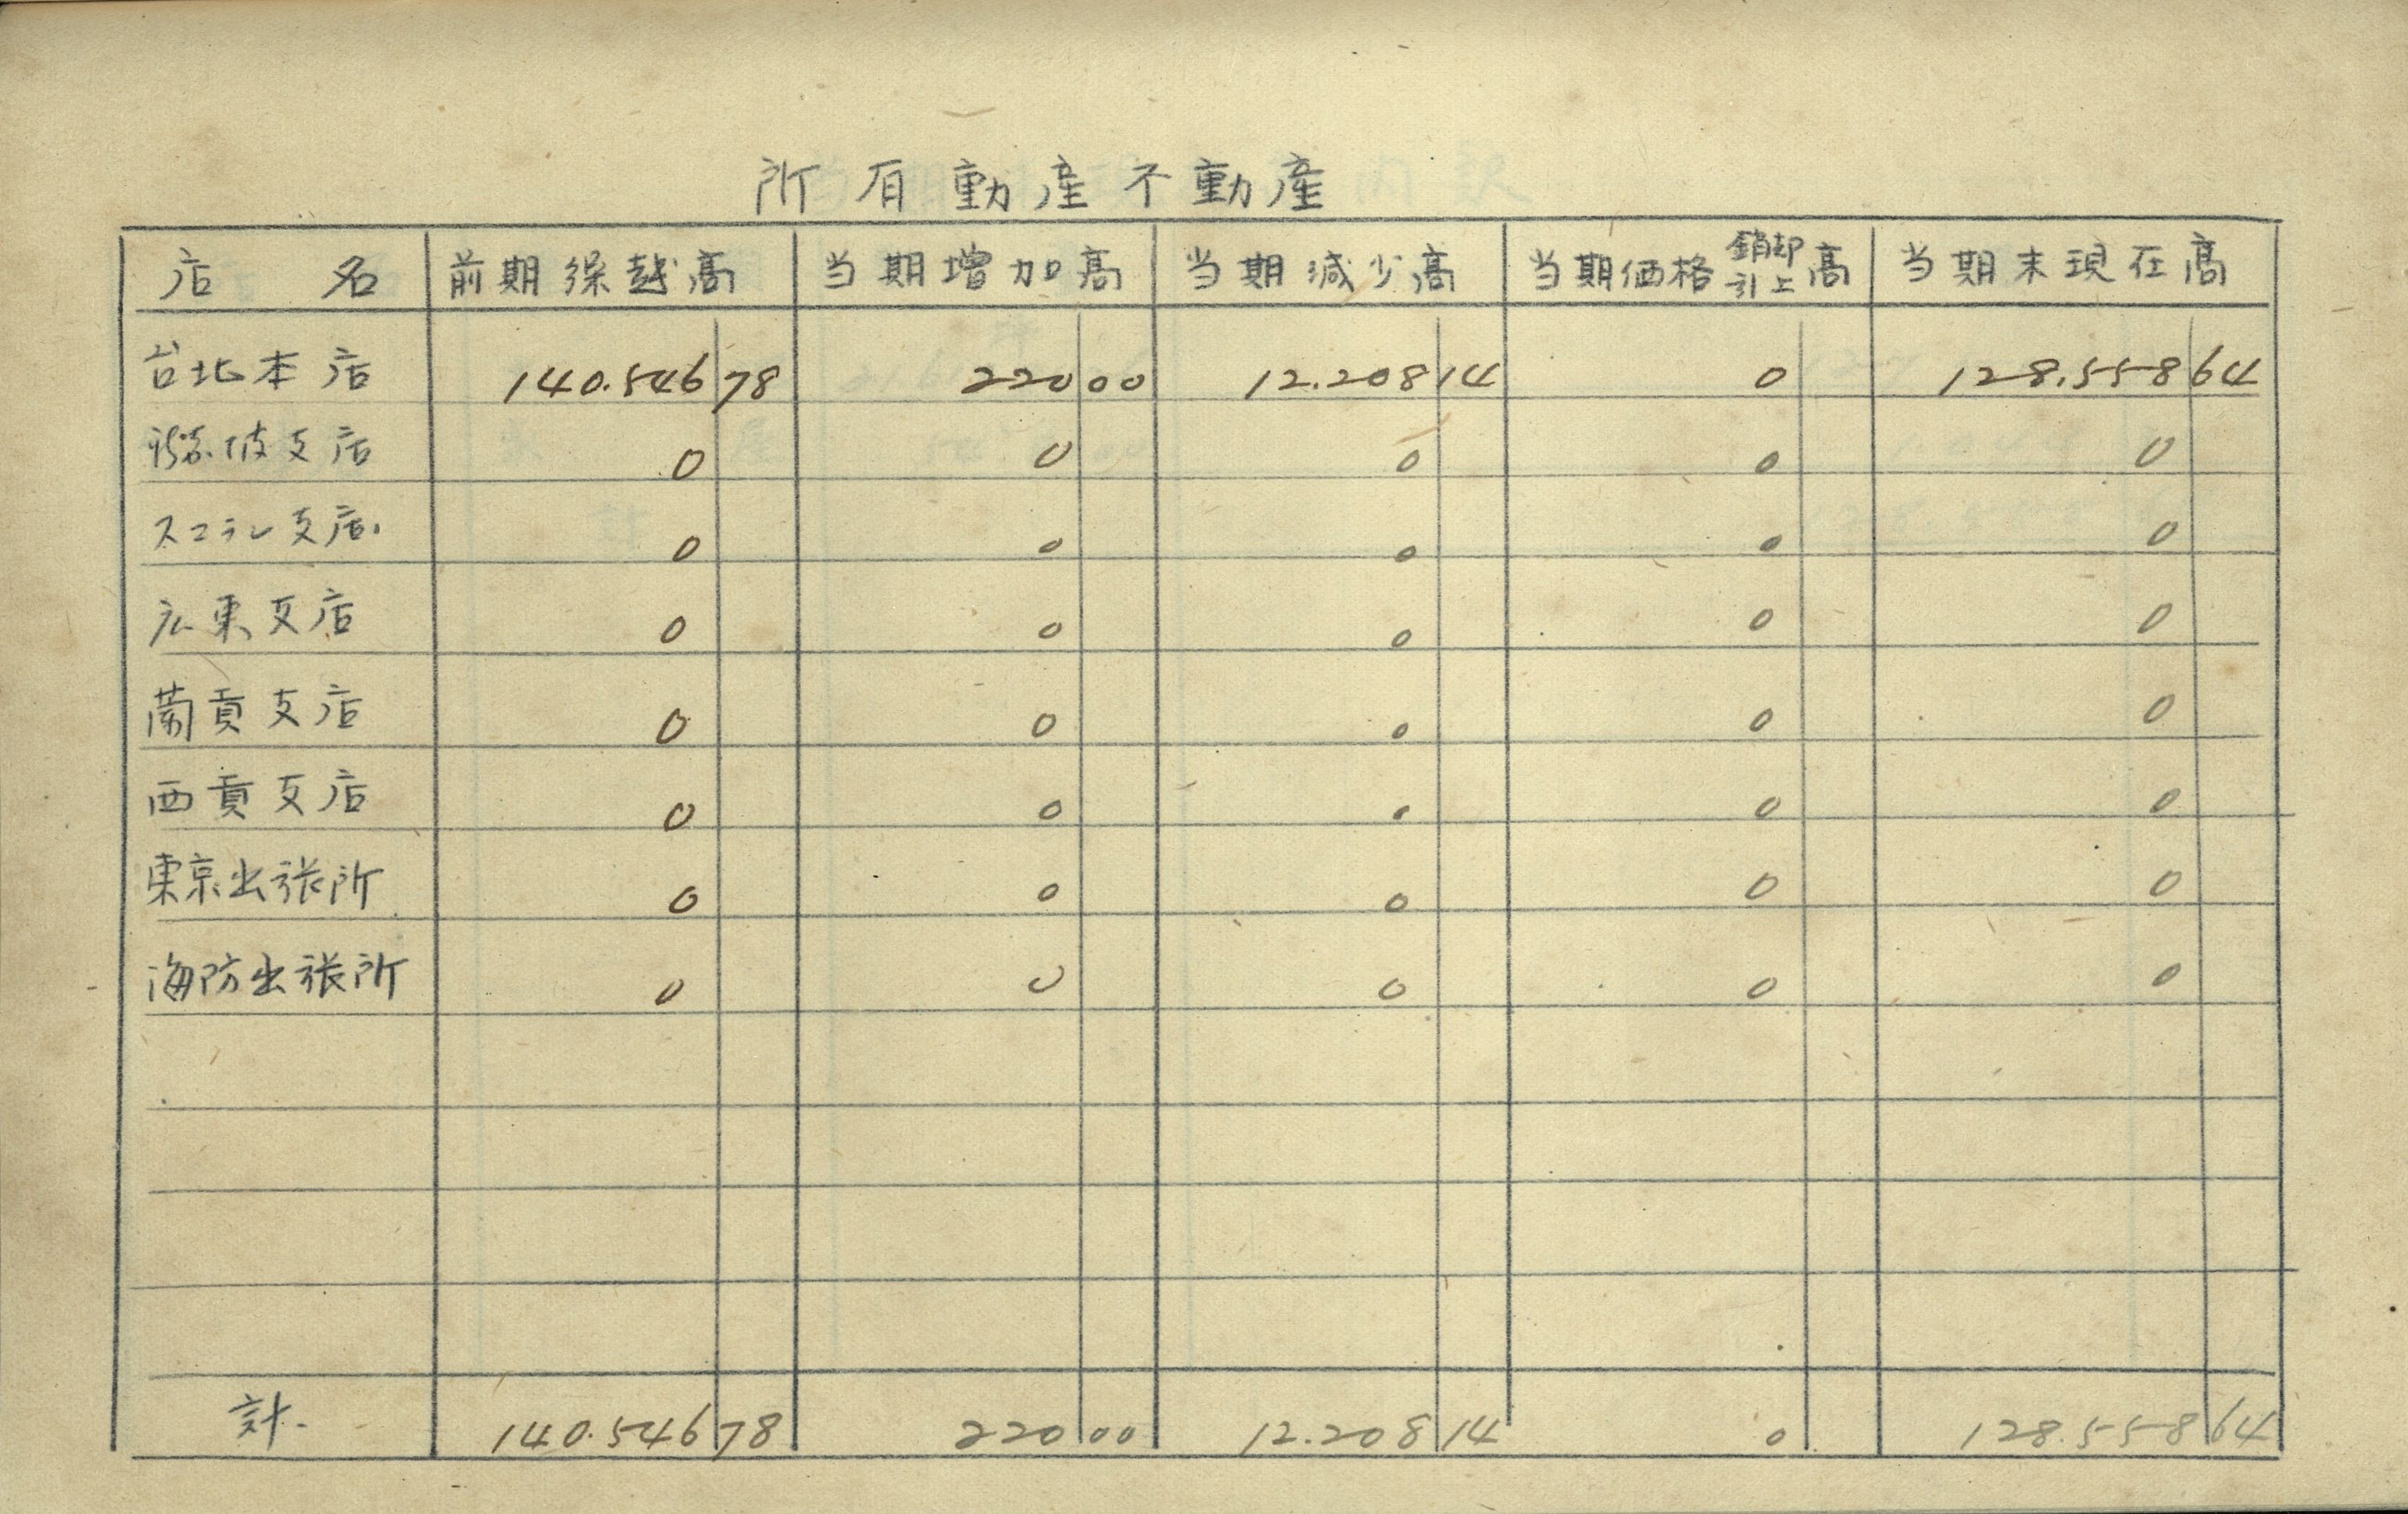 所有動産不動産
店名 前期繰越高 当期増加高 当期減少高 当期価格銷却引上高 当期末現在高
台北本店 140.546 78 220 00 12.208 14 0 128.558 64
新嘉坡支店 0 0 0 0 0
スマラン支店 0 0 0 0 0
広東支店 0 0 0 0 0
蘭貢支店 0 0 0 0 0
西貢支店 0 0 0 0 0
東京出張所 0 0 0 0 0
海防出張所 0 0 0 0 0
計 140.546 78 220 00 12.208 14 0 128.558 64